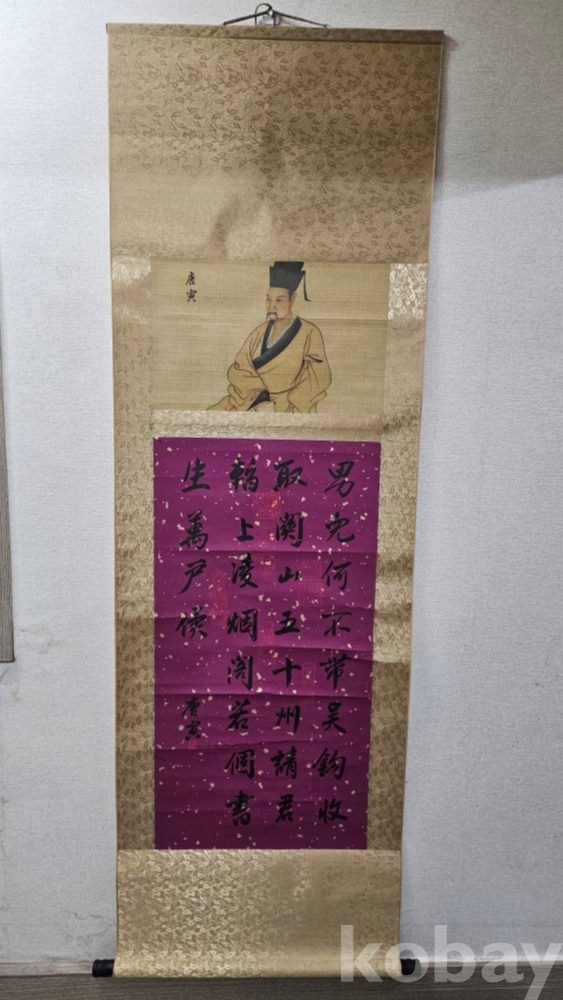 唐寅
男兒何不帶吳鈎收
取關山五十州請君
暫上凌烟閣若個書
生萬戶侯
唐寅
kobay